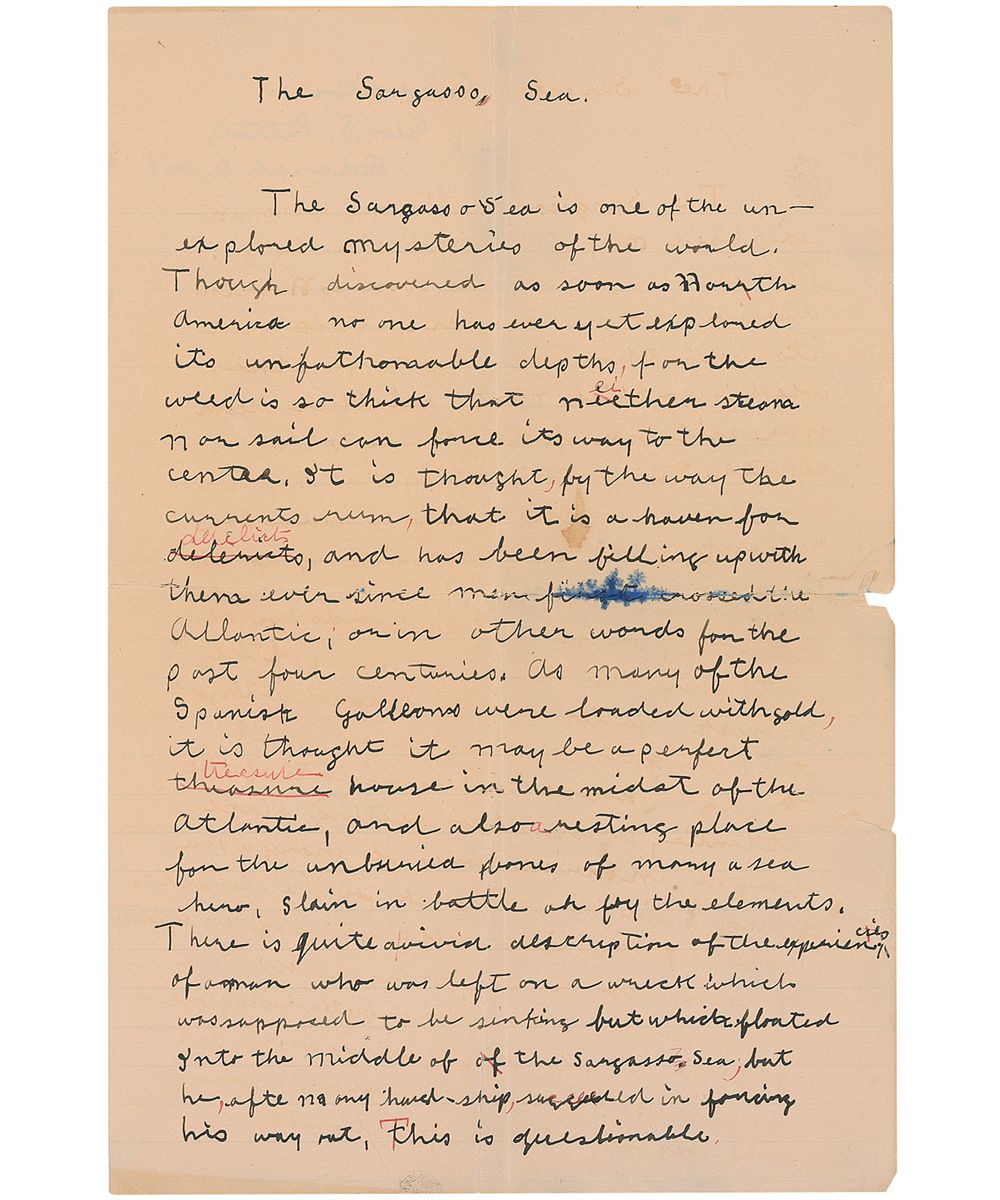 The Sargasso Sea.
The Sargasso Sea is one of the un-
explored mysteries of the world.
Though discovered as soon as North
America no one has ever yet explored
its unfathomable depths, for the
ei
weed is so thick that neither steam
nor sail can force its way to the
center. It is thought, by the way the
currents rum, that it is a haven for
derelicts
delericts, and has been filling up with
them ever since men first crossed the
Atlantic; or in other words for the
past four centuries. As many of the
Spanish Galleons were loaded with gold,
it is thought it may be a perfect
treasure
threasure house in the midst of the
Atlantic, and also a resting place
for the unburied bones of many a sea
hero, slain in battle or by the elements.
There is quite a vivid description of the experiencies
of a man who was left on a wreck which
was supposed to be sinking but which floated
into the middle of of the Sargasso Sea; but
he, afte many hard-ship, succeeded in forcing
his way out, This is questionable.